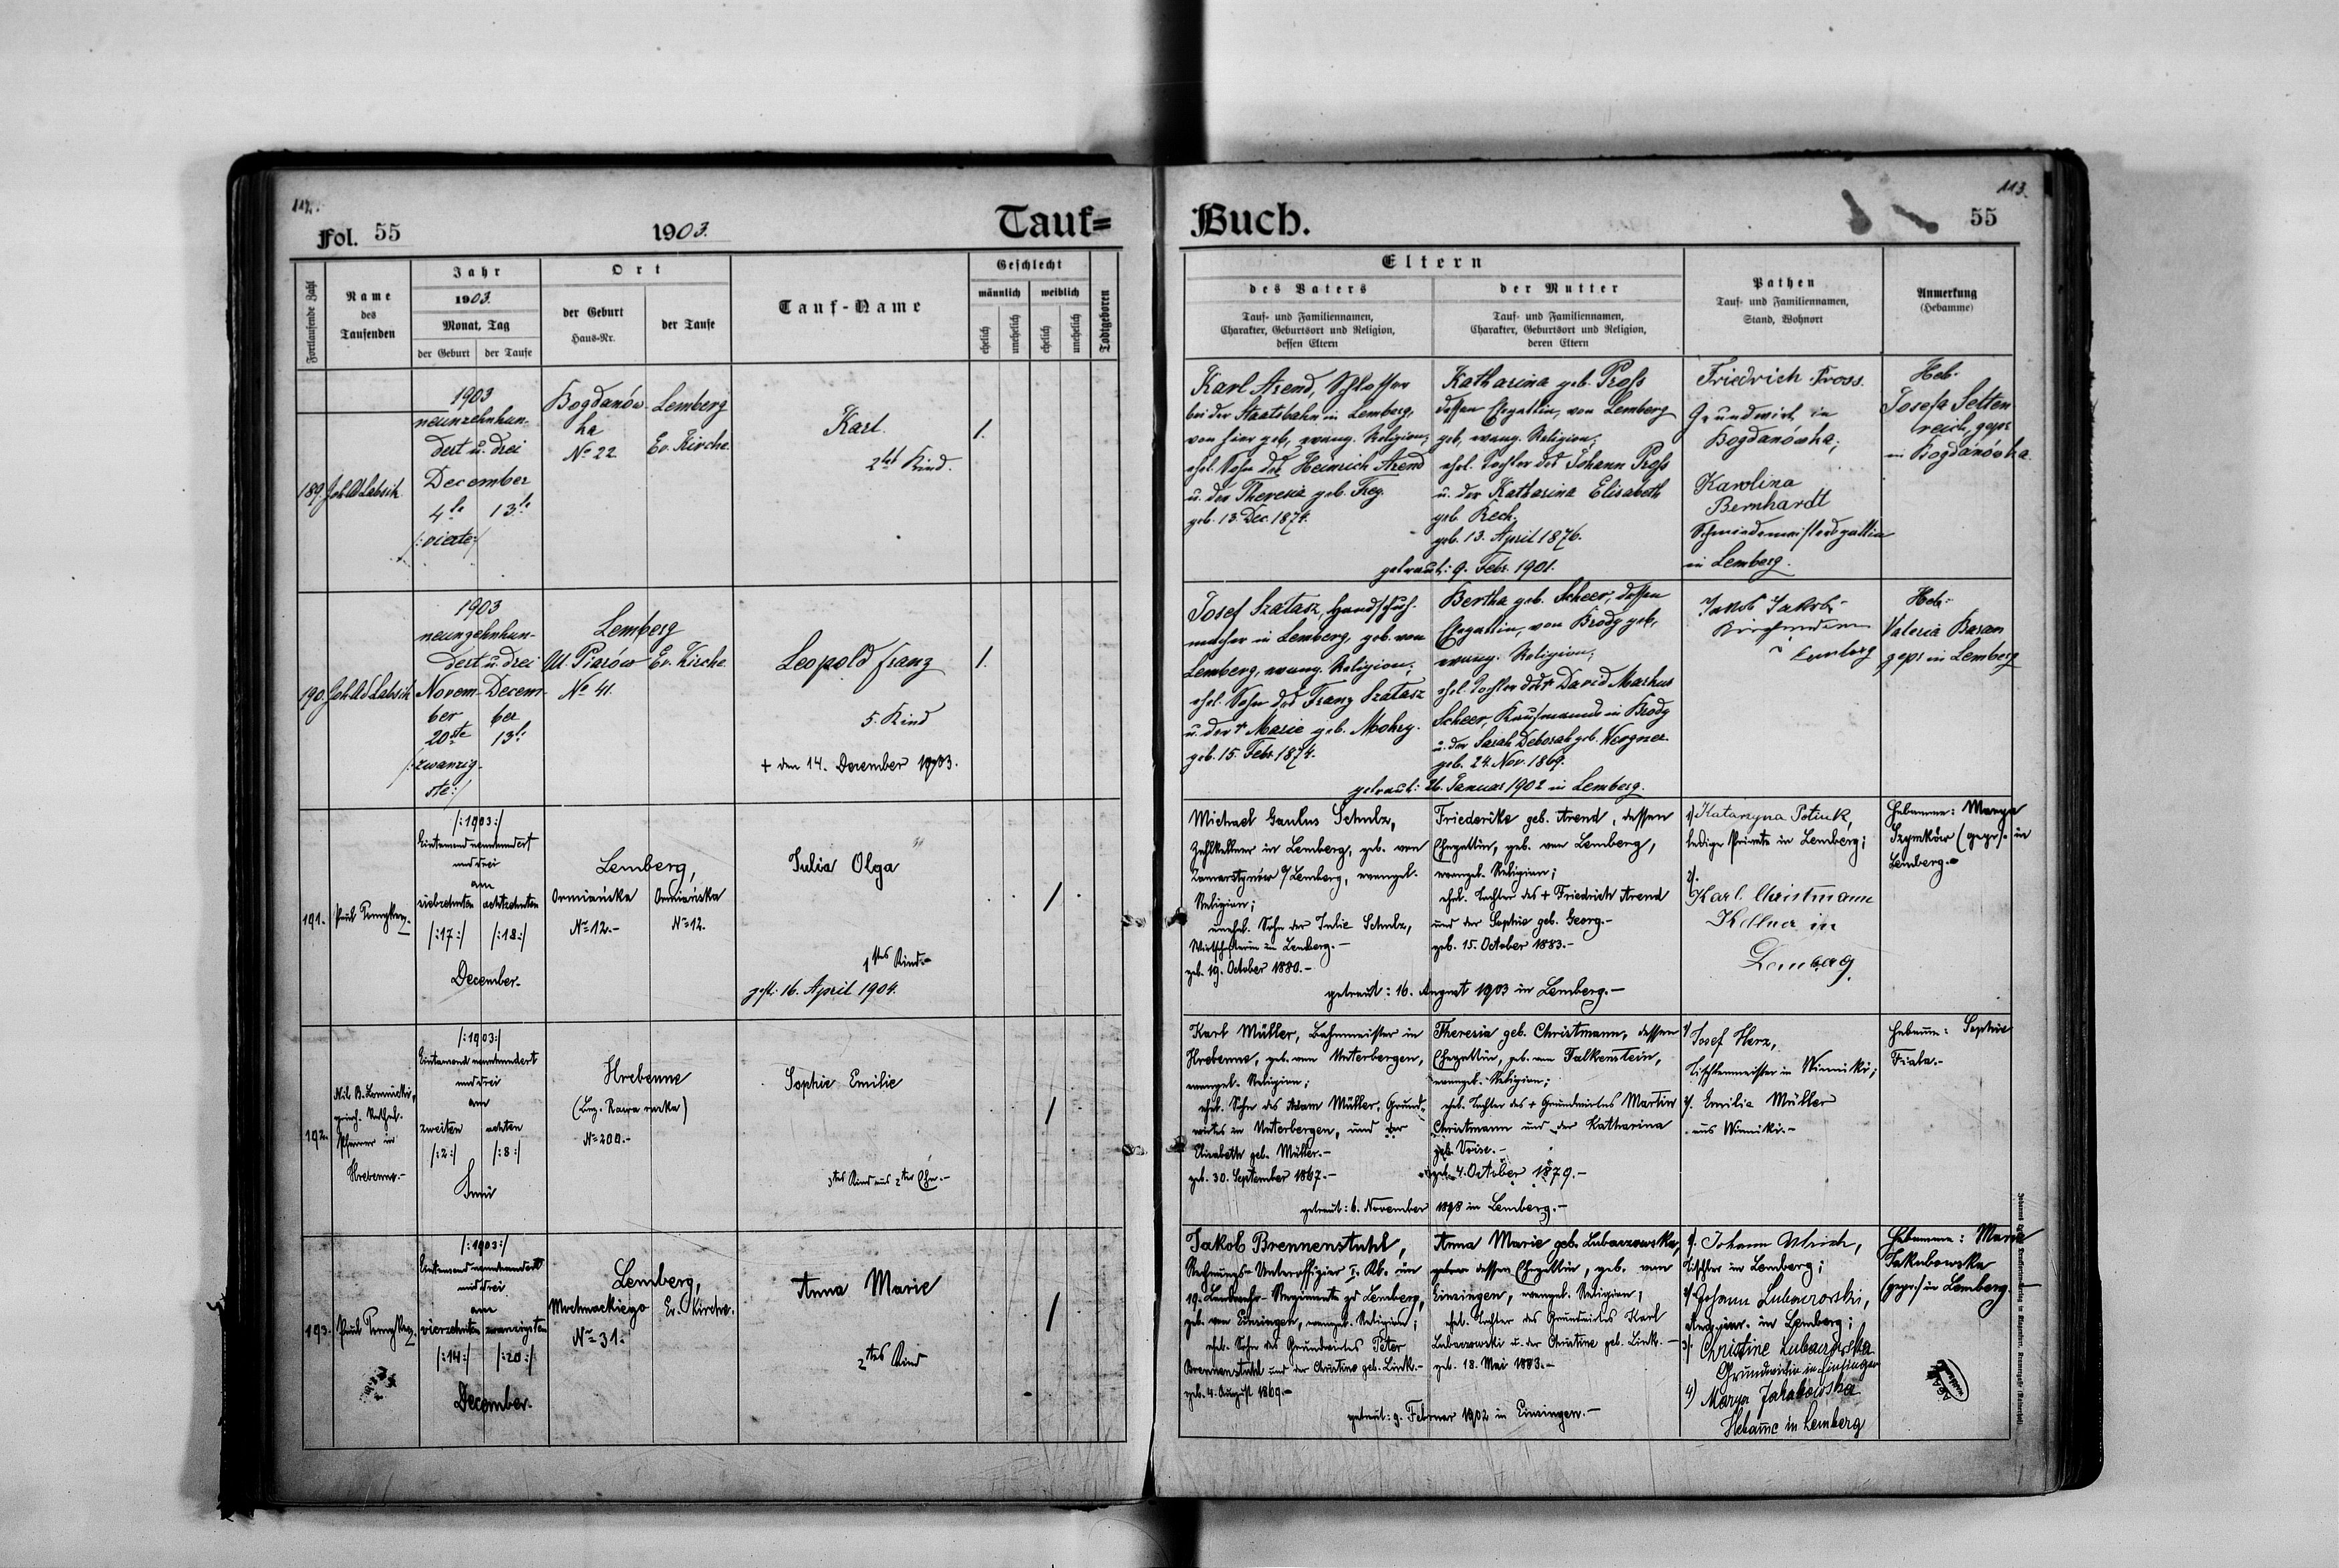 112.
Fol. 55
1903.
Tauf=
Fortlaufende Zahl
Name
des
Taufenden
Jahr
1903.
Monat, Tag
der Geburt
der Taufe
Ort
der Geburt
Haus-Nr.
der Taufe
Tauf-Name
Geschlecht
männlich
weiblich
ehelich
unehelich
ehelich
unehelich
Todtgeboren
189.
1903
neunzehnhun-
dert u. drei
December
4te 13te
/:vierte:/
Bogdanów-
ka
No 22
Lemberg
Ev. Kirche.
Karl.
2tes Kind.
1.
190.
1903
neunzehnhun-
dert u. drei
Novem-
ber
20ste
/:zwanzig-
ste:/
Decem-
ber
13te
Lemberg
Ul. Piarów
No 41.
Ev. Kirche
Leopold Franz
5. Kind
+ den 14. Dezember 1903.
1.
191.
Paul
/:1903:/
Eintausend neunhundert
und drei
am
siebzehnten
achtzehnten
/:17:/
/:18:/
December.
Lemberg,
Ormiańska
No 12.-
Ormiańska
No 12.
Julia Olga
1stes Kind.-
gest: 16. April 1904.
192.
Nil B.
griech. kathol.
Pfarrer in
Hrebenne.-
/:1903:/
Eintausend neunhundert
und drei
am
zweiten
achten
/:2:/
/:8:/
Juni
Hrebenne
(Bez. Rawa ruska)
No 200.-
Sophie Emilie
3tes Kind aus 2ter Ehe.-
193.
Paul
/:1903:/
Eintausend neunhundert
und drei
am
vierzehnten
zwanzigsten
/:14:/
/:20:/
December.
Lemberg,
Mochnackiego
No 31.
Ev. Kirche.
Anna Marie
2tes Kind
113.
Buch.
55
Eltern
des Vaters
Tauf- und Familiennamen,
Charakter, Geburtsort und Religion,
dessen Eltern
der Mutter
Tauf- und Familiennamen,
Charakter, Geburtsort und Religion,
deren Eltern
Pathen
Tauf- und Familiennamen,
Stand, Wohnort
Anmerkung
(Hebamme)
Karl Arend, Schlosser
bei der Staatsbahn in Lemberg,
von hier geb., evang. Religion;
ehel. Sohn des Heinrich Arend
u. der Theresia geb. Frey.
geb. 13. Dec. 1874.
Katharina geb. Pross
dessen Ehegattin, von Lemberg
geb, evang. Religion;
ehel. Tochter des Johann Pross
u. der Katharina Elisabeth
geb. Rech.
geb. 13. April 1876.
getraut: 9. Febr. 1901.
Friedrich Pross.
Grundwirt in
Bogdanówka;
Karolina
Bernhardt
Schmiedemeistersgattin
in Lemberg.
Heb.
Josefa Selten
reich, gepr.
in Bogdanówka
Josef Szatasz, Handschuh-
macher in Lemberg, geb. von
Lemberg, evang. Religion;
ehel. Sohn des Franz Szatasz
u. der + Marie geb. Mokry.
geb. 15. Febr. 1874.
Bertha geb. Scheer, dessen
Ehegattin, von Brody geb,
evang. Religion;
ehel. Tochter des + David Markus
Scheer, Kaufmanns in Brody
u. der Sarah Deborah geb.
geb. 24. Nov. 1869.
getraut: 26. Januar 1902 in Lemberg.
Jakob Jakobi
Lemberg
Heb:
Valeria Baran
gepr in Lemberg
Michael Gaulus Schulz,
Zahlkellner in Lemberg, geb. von
Zamarstynów a/Lemberg, evangel.
Religion;
unehel. Sohn der Julie Schulz,
Wirtschafterin in Lemberg.-
geb. 19. October 1880.-
Friederike geb. Arend, dessen
Ehegattin, geb. von Lemberg,
evangel. Religion;
ehel. Tochter des + Friedrich Arend
und der Sophie geb. Georg.-
geb. 15. October 1883.-
getraut: 16. August 1903 in Lemberg.-
1) Katarzyna Potiuk,
ledige Private in Lemberg;
2).
Karl Christmann
Kellner in
Lemberg
Hebamme: Marya
Szymków (gepr). in
Lemberg.
Karl Müller, Bahnmeister in
Hrebenne, geb. von Unterbergen,
evangel. Religion;
ehel. Sohn des Adam Müller, Grund-
wirtes in Unterbergen, und der
Elisabeth geb. Müller.-
geb. 30. September 1867.-
Theresia geb. Christmann, dessen
Ehegattin, geb. von Falkenstein,
evangel. Religion;
ehel. Tochter des + Grundwirtes Martin
Christmann und der Katharina
geb.
geb. 4. October 1879.-
getraut: 6. November 1898 in Lemberg.-
1) Josef Herz,
Tischlermeister in Winniki;
2). Emilie Müller
aus Winniki.-
Hebamme: Sophie
Fiala.-
Jakob Brennenstuhl,
Rechnungs-Unteroffizier I. Kl. im
19. Landwehr-Regimente zu Lemberg,
geb. von Einsingen, evangel. Religion;
ehel. Sohn des Grundwirtes Peter
Brennenstuhl und der Christine geb. Link.-
geb. 4. August 1869.-
Anna Marie geb. Lubaczowska,
dessen Ehegattin, geb. von
Einsingen, evangel. Religion;
ehel. Tochter des Grundwirtes Karl
Lubaczowski u. der Christine geb. Link.-
geb. 18. Mai 1883.-
getraut: 9. Februar 1902 in Einsingen.-
1). Johann Ulrich,
Tischler in Lemberg;
2) Johann Lubaczowski,
in Lemberg;
3). Christine Lubaczowska
Grundwirtin in Einsingen
4) Marya Jakubowska
Hebamme in Lemberg
Hebamme: Marie
Jakubowska
(gepr.) in Lemberg.